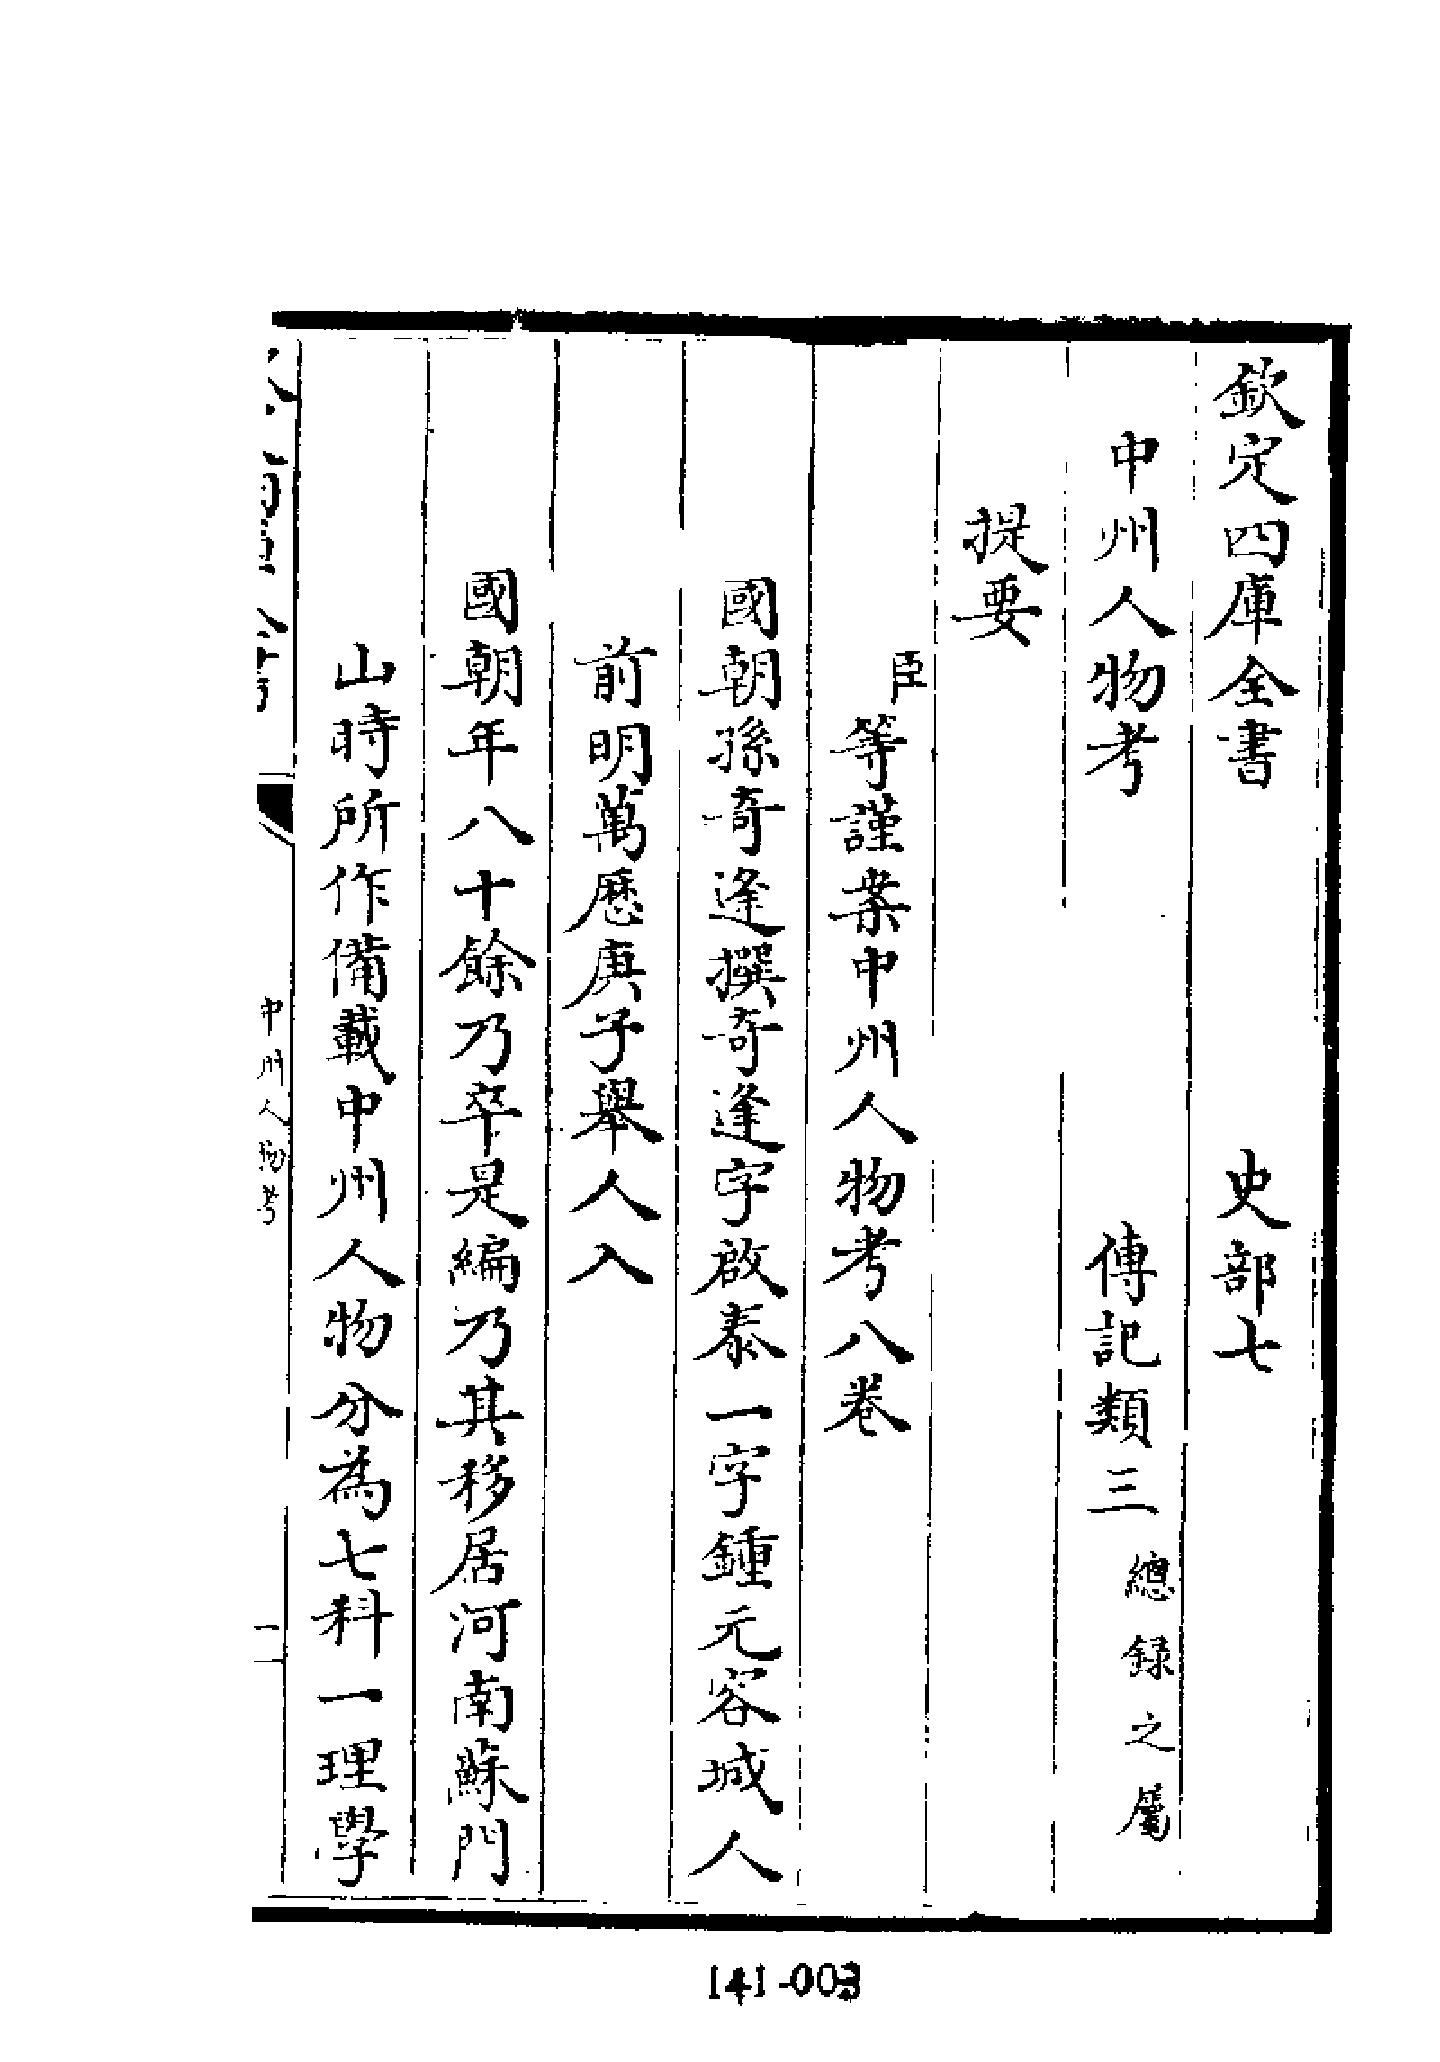 欽定四庫全書　史部七
中州人物考　傳記類三總録之屬
提要
臣等謹案中州人物考八卷
國朝孫奇逢撰奇逢字啟泰一字鍾元容城人
前明萬歷庚子舉人入
國朝年八十餘乃卒是編乃其移居河南蘇門
山時所作備載中州人物分為七科一理學
中州人物考
一
141-003